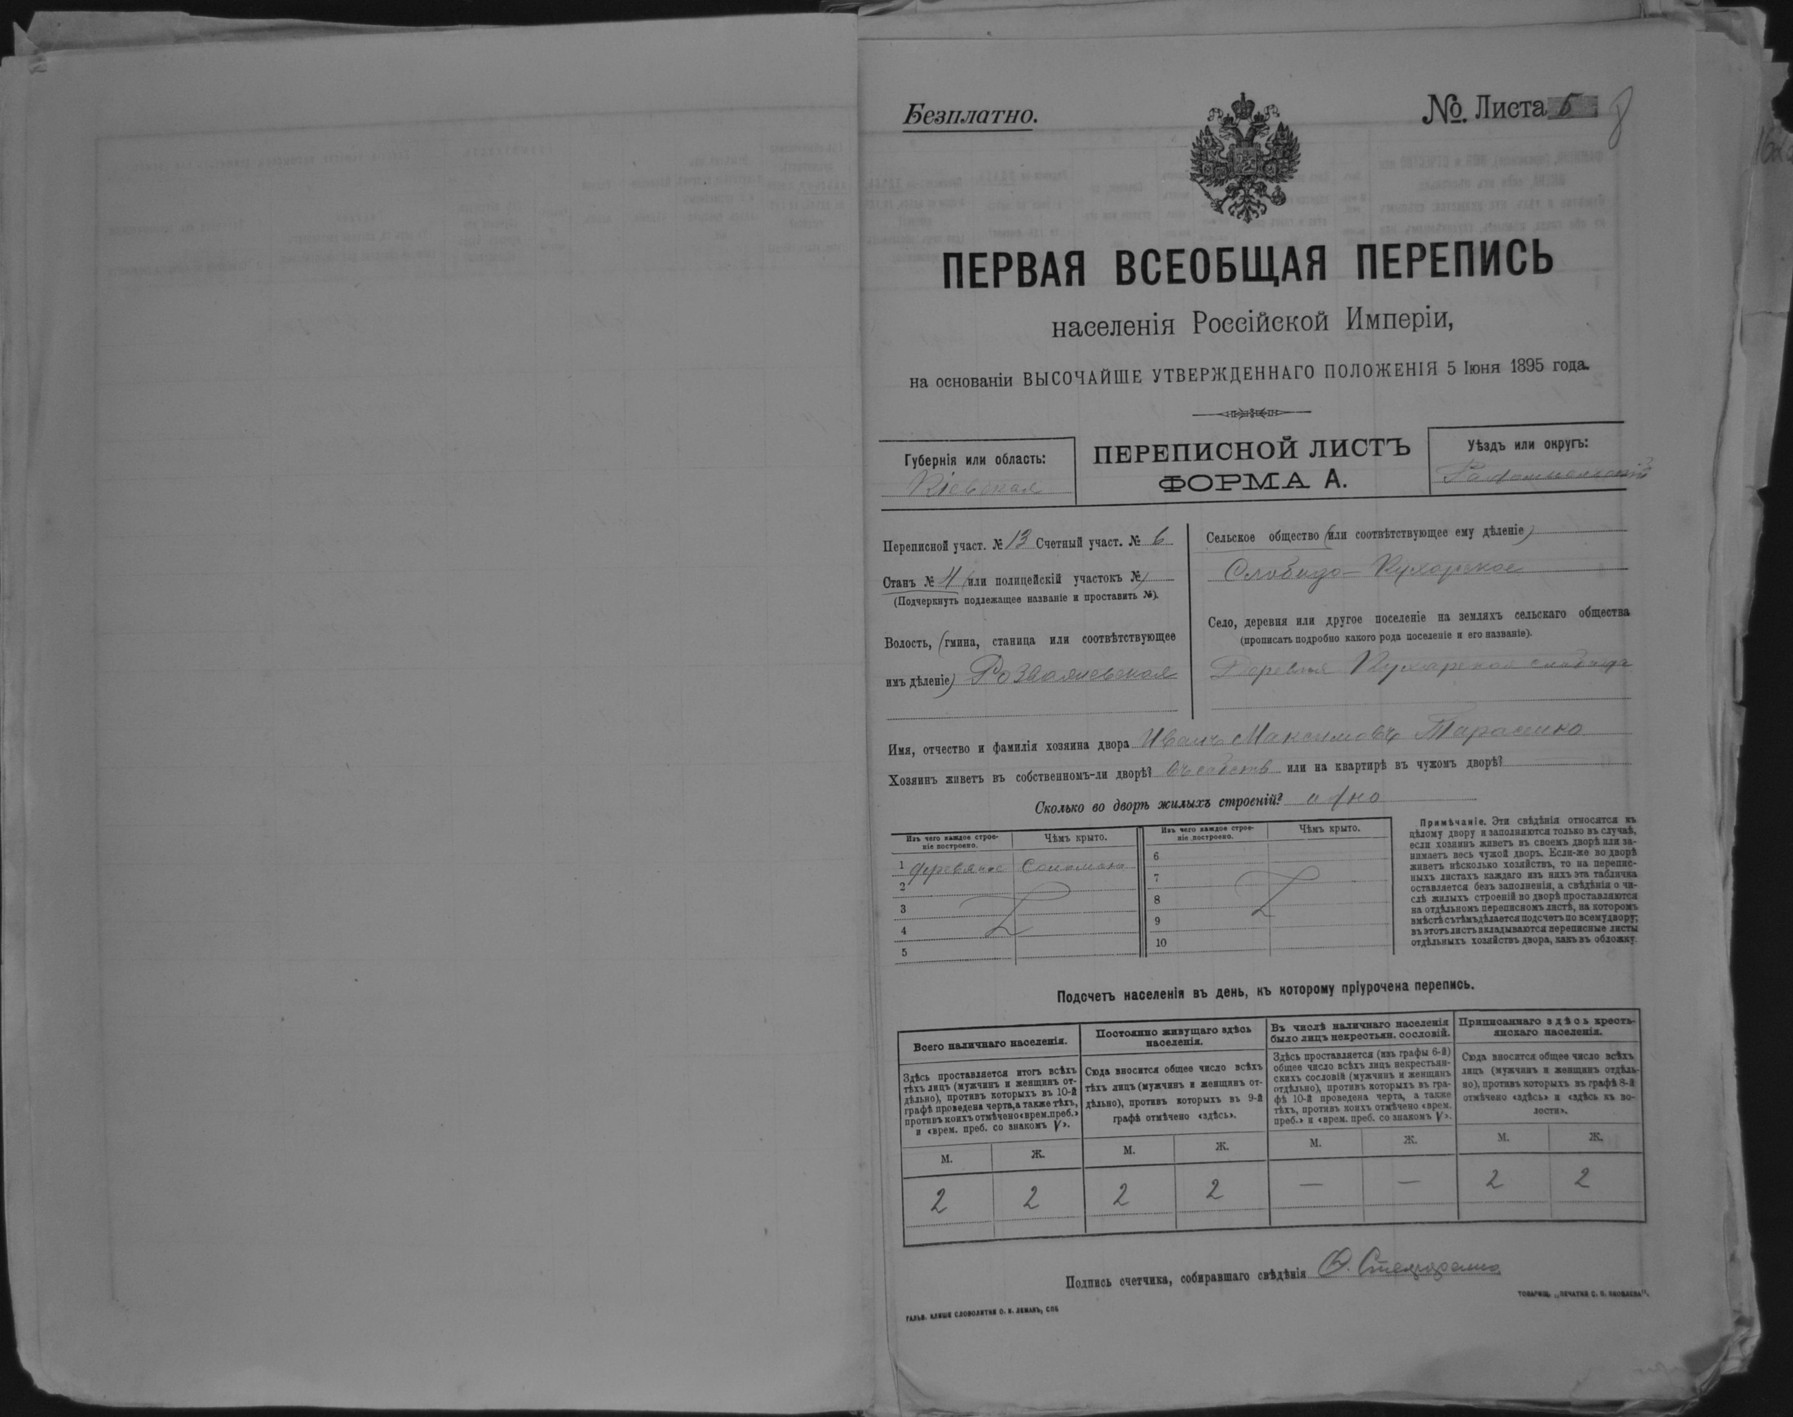 Безплатно.
№ Листа 5
ПЕРВАЯ ВСЕОБЩАЯ ПЕРЕПИСЬ
населенія Россійской Имперіи,
на основаніи ВЫСОЧАЙШЕ УТВЕРЖДЕННАГО ПОЛОЖЕНІЯ 5 Іюня 1895 года.
Губернія или область:
Кіевская
ПЕРЕПИСНОЙ ЛИСТЪ
ФОРМА А.
Уѣздъ или округъ:
Радомысльскій
Переписной участ. № 13 Счетный участ. № 6
Станъ № 4 (или полицейскій участокъ №)
(Подчеркнуть подлежащее названіе и проставить №).
Волость, (гмина, станица или соотвѣтствующее
имъ дѣленіе)
Сельское общество (или соотвѣтствующее ему дѣленіе)
Слобидо-Кухарское
Село, деревня или другое поселеніе на земляхъ сельскаго общества
(прописать подробно какого рода поселеніе и его названіе).
Деревня Кухарская слобода
Имя, отчество и фамилія хозяина двора Иванъ Максимовъ Тарасенко
Хозяинъ живетъ въ собственномъ-ли дворѣ? въ собств или на квартирѣ въ чужомъ дворѣ?
Сколько во дворѣ жилыхъ строеній? одно
Изъ чего каждое строе-
ніе построено.
Чѣмъ крыто.
Изъ чего каждое строе-
ніе построено.
Чѣмъ крыто.
1 деревяное Соломою
2
3
4
5
6
7
8
9
10
Примѣчаніе. Эти свѣдѣнія относятся къ
цѣлому двору и заполняются только въ случаѣ,
если хозяинъ живетъ въ своемъ дворѣ или за-
нимаетъ весь чужой дворъ. Если-же во дворѣ
живетъ нѣсколько хозяйствъ, то на перепис-
ныхъ листахъ каждаго изъ нихъ эта табличка
оставляется безъ заполненія, а свѣдѣнія о чи-
слѣ жилыхъ строеній во дворѣ проставляются
на отдѣльномъ переписномъ листѣ, на которомъ
вмѣстѣ съ тѣмъ дѣлается подсчетъ по всему двору;
въ этотъ листъ вкладываются переписные листы
отдѣльныхъ хозяйствъ двора, какъ въ обложку.
Подсчетъ населенія въ день, къ которому пріурочена перепись.
Всего наличнаго населенія.
Здѣсь проставляется итогъ всѣхъ
тѣхъ лицъ (мужчинъ и женщинъ от-
дѣльно), противъ которыхъ въ 10-й
графѣ проведена черта, а также тѣхъ,
противъ коихъ отмѣчено «врем. преб.»
и «врем. преб. со знакомъ V».
М. Ж.
2 2
Постоянно живущаго здѣсь
населенія.
Сюда вносится общее число всѣхъ
тѣхъ лицъ (мужчинъ и женщинъ от-
дѣльно), противъ которыхъ въ 9-й
графѣ отмѣчено «здѣсь».
М. Ж.
2 2
Въ числѣ наличнаго населенія
было лицъ некрестьян. сословій.
Здѣсь проставляется (изъ графы 6-й)
общее число всѣхъ лицъ некрестьян-
скихъ сословій (мужчинъ и женщинъ
отдѣльно), противъ которыхъ въ гра-
фѣ 10-й проведена черта, а также
тѣхъ, противъ коихъ отмѣчено «врем.
преб.» и «врем. преб. со знакомъ V».
М. Ж.
— —
Приписаннаго здѣсь кресть-
янскаго населенія.
Сюда вносится общее число всѣхъ
лицъ (мужчинъ и женщинъ отдѣль-
но), противъ которыхъ въ графѣ 8-й
отмѣчено «здѣсь» и «здѣсь къ во-
лости».
М. Ж.
2 2
Подпись счетчика, собиравшаго свѣдѣнія
ГАЛЬВ. КЛИШЕ СЛОВОЛИТНИ О. И. ЛЕМАНЪ, СПБ
ТОВАРИЩ. „ПЕЧАТНЯ С. П. ЯКОВЛЕВА".